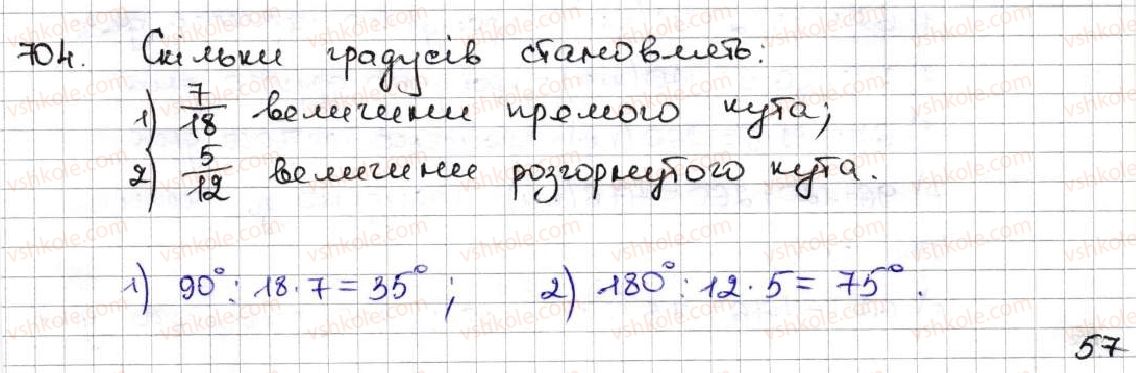 704. Скільки градусів становлять:
1) 7/18 величини прямого кута;
2) 5/12 величини розгорнутого кута.
1) 90° : 18 · 7 = 35° ; 2) 180° : 12 · 5 = 75° .
57